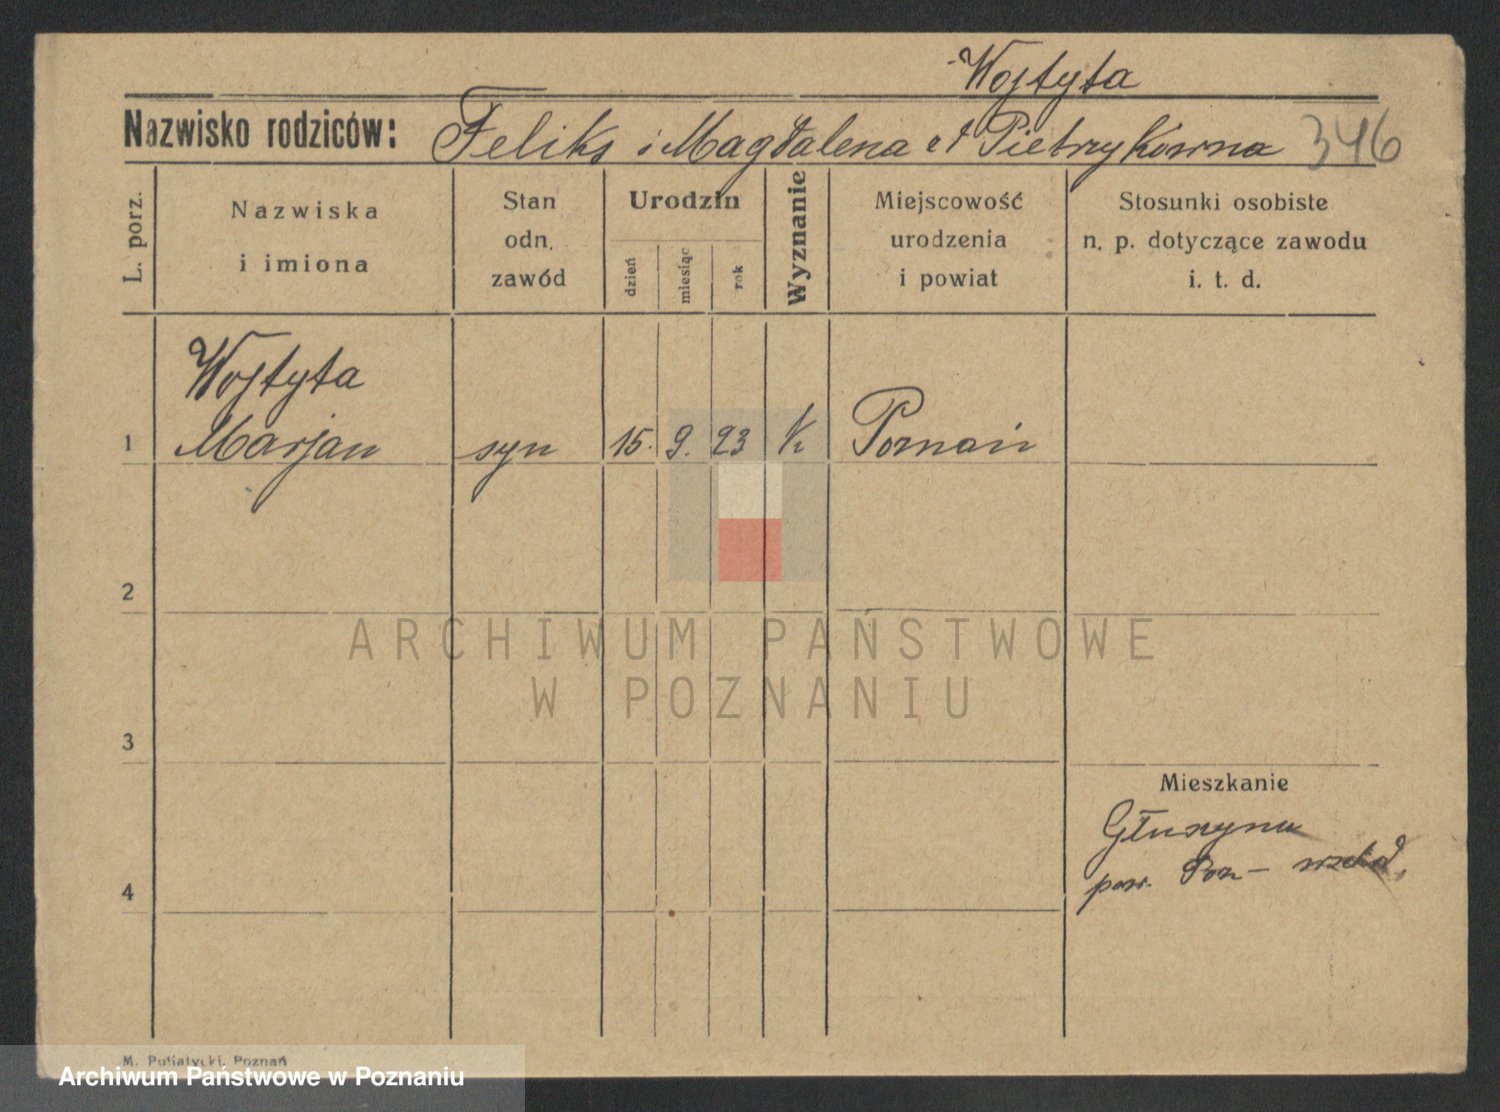 Wojtyła
Nazwisko rodziców: Feliks i Magdalena z Pietrzyków 346
L. porz.
Nazwiska
i imiona
Stan
odn.
zawód
Urodzin
dzień
miesiąc
rok
Wyznanie
Miejscowość
urodzenia
i powiat
Stosunki osobiste
n. p. dotyczące zawodu
i. t. d.
Wojtyła
1 Marjan syn 15. 9. 23 k Poznań
2
ARCHIWUM PAŃSTWOWE
W POZNANIU
3
Mieszkanie
Głuszyna
pow. Poz- wschód.
4
M. Putiatycki, Poznań
Archiwum Państwowe w Poznaniu